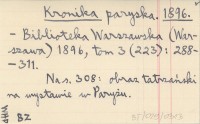 Kronika paryska. 1896.
- Biblioteka Warszawska (War-
szawa) 1896, tom 3 (223): 288-
-311.
Na s. 308: obraz tatrzański
na wystawie w Paryżu.
BZ